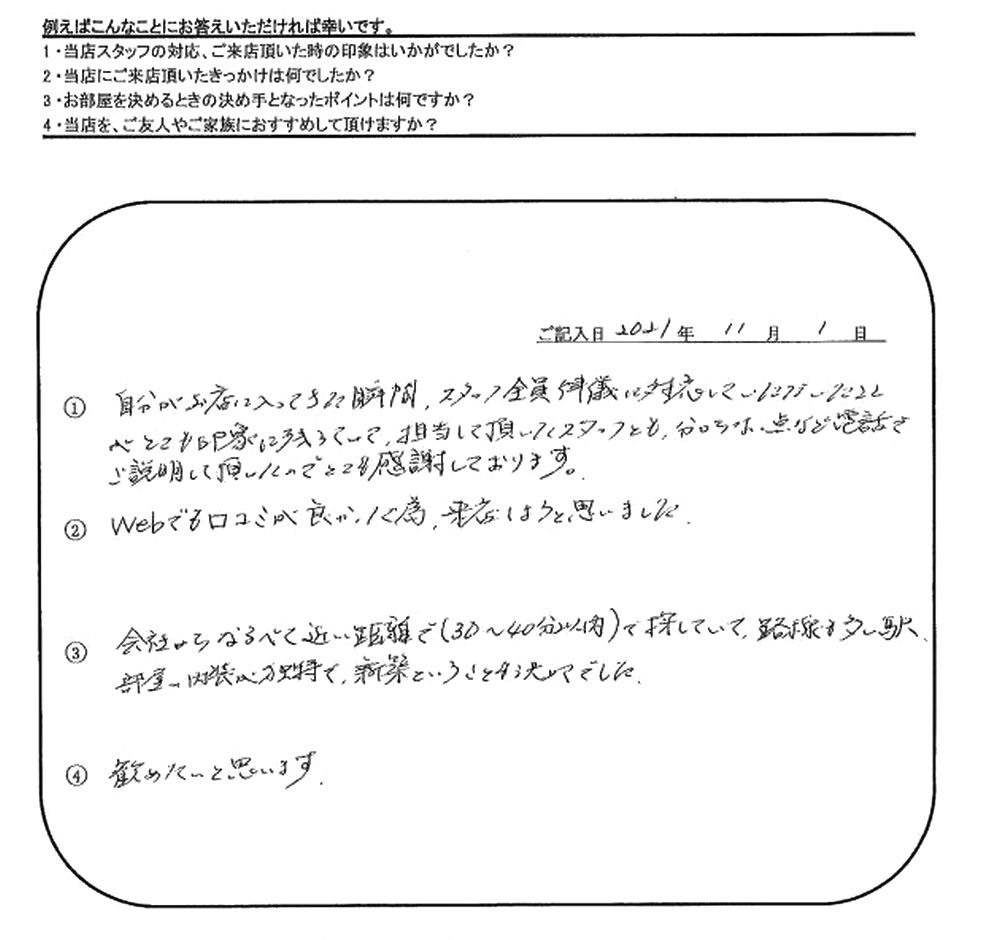 例えばこんなことにお答えいただければ幸いです。
1・当店スタッフの対応、ご来店頂いた時の印象はいかがでしたか？
2・当店にご来店頂いたきっかけは何でしたか？
3・お部屋を決めるときの決め手となったポイントは何ですか？
4・当店を、ご友人やご家族におすすめして頂けますか？
ご記入日 2021年 11月 1日
① 自分がお店に入ってきた瞬間、スタッフ全員 対応して いただいたこと
がとても印象に残っていて、担当して頂いたスタッフも、分からない点など電話で
ご説明して頂いたのでとても感謝しております。
② Webでも口コミが良かった為、来店しようと思いました。
③ 会社からなるべく近い距離で(30～40分以内)で探していて、路線も多い駅、
部屋の内装が独特で、新築ということも決めてでした。
④ 勧めたいと思います。